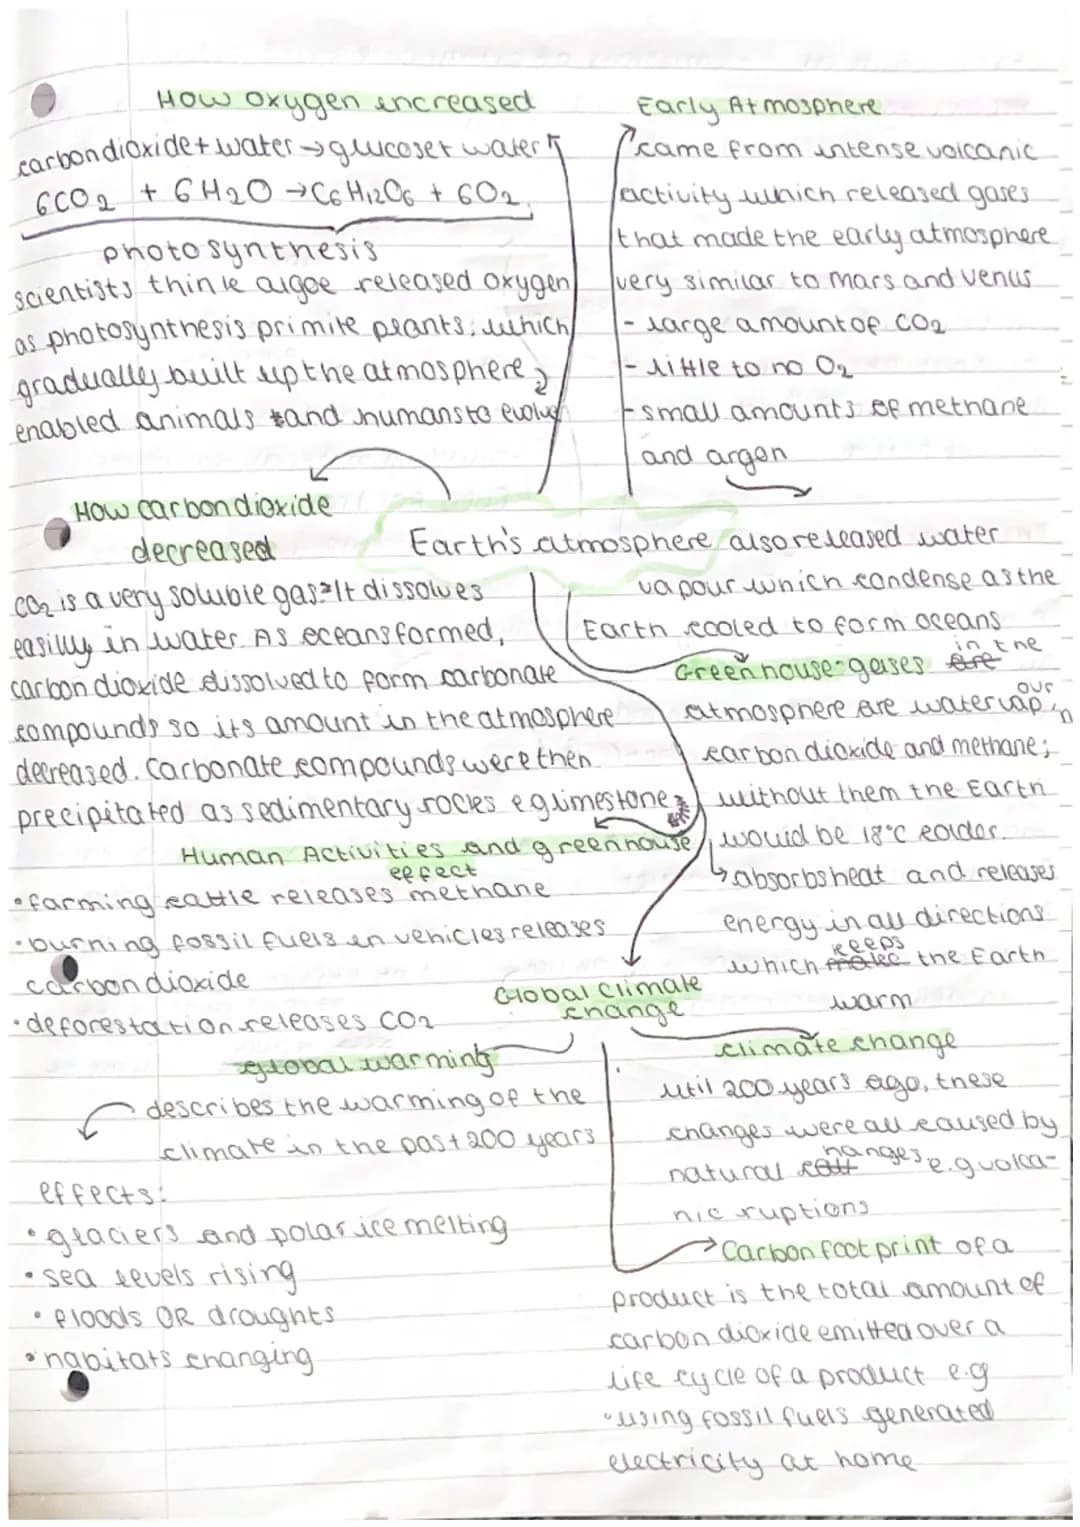 How oxygen increased
carbondioxide + water → glucose + water
6CO2 + 6H2O → C6H12O6 + 6O2
photosynthesis
scientists think algae released oxygen
as photosynthesis primite plants; which
gradually built up the atmosphere
enabled animals and humans to evolve
Early Atmosphere
came from intense volcanic
activity which released gases
that made the early atmosphere
very similar to Mars and Venus
- large amount of CO2
- little to no O2
- small amounts of methane
and argon
How carbondioxide
decreased
CO2 is a very soluble gas. It dissolves
easilly in water. As oceans formed,
carbon dioxide dissolved to form carbonate
compounds so its amount in the atmosphere
decreased. Carbonate compounds were then
precipitated as sedimentary rocks e.g limestone
Earth's atmosphere
also released water
vapour which condense as the
Earth cooled to form oceans
Greenhouse gases in the
atmosphere are water vapour,
carbon dioxide and methane;
without them the Earth
would be 18°C colder.
↳ absorbs heat and releases
energy in all directions
which keeps the Earth
warm
Human Activities and greenhouse
effect
• farming cattle releases methane
• burning fossil fuels in vehicles releases
carbon dioxide
• deforestation releases CO2
Global Climate
change
global warming
describes the warming of the
climate in the past 200 years
effects:
• glaciers and polar ice melting
• sea levels rising
• floods OR droughts
• habitats changing
climate change
util 200 years ago, these
changes were all caused by
natural changes e.g volca-
nic ruptions
Carbon footprint of a
product is the total amount of
carbon dioxide emitted over a
life cycle of a product e.g
• using fossil fuels generated
electricity at home